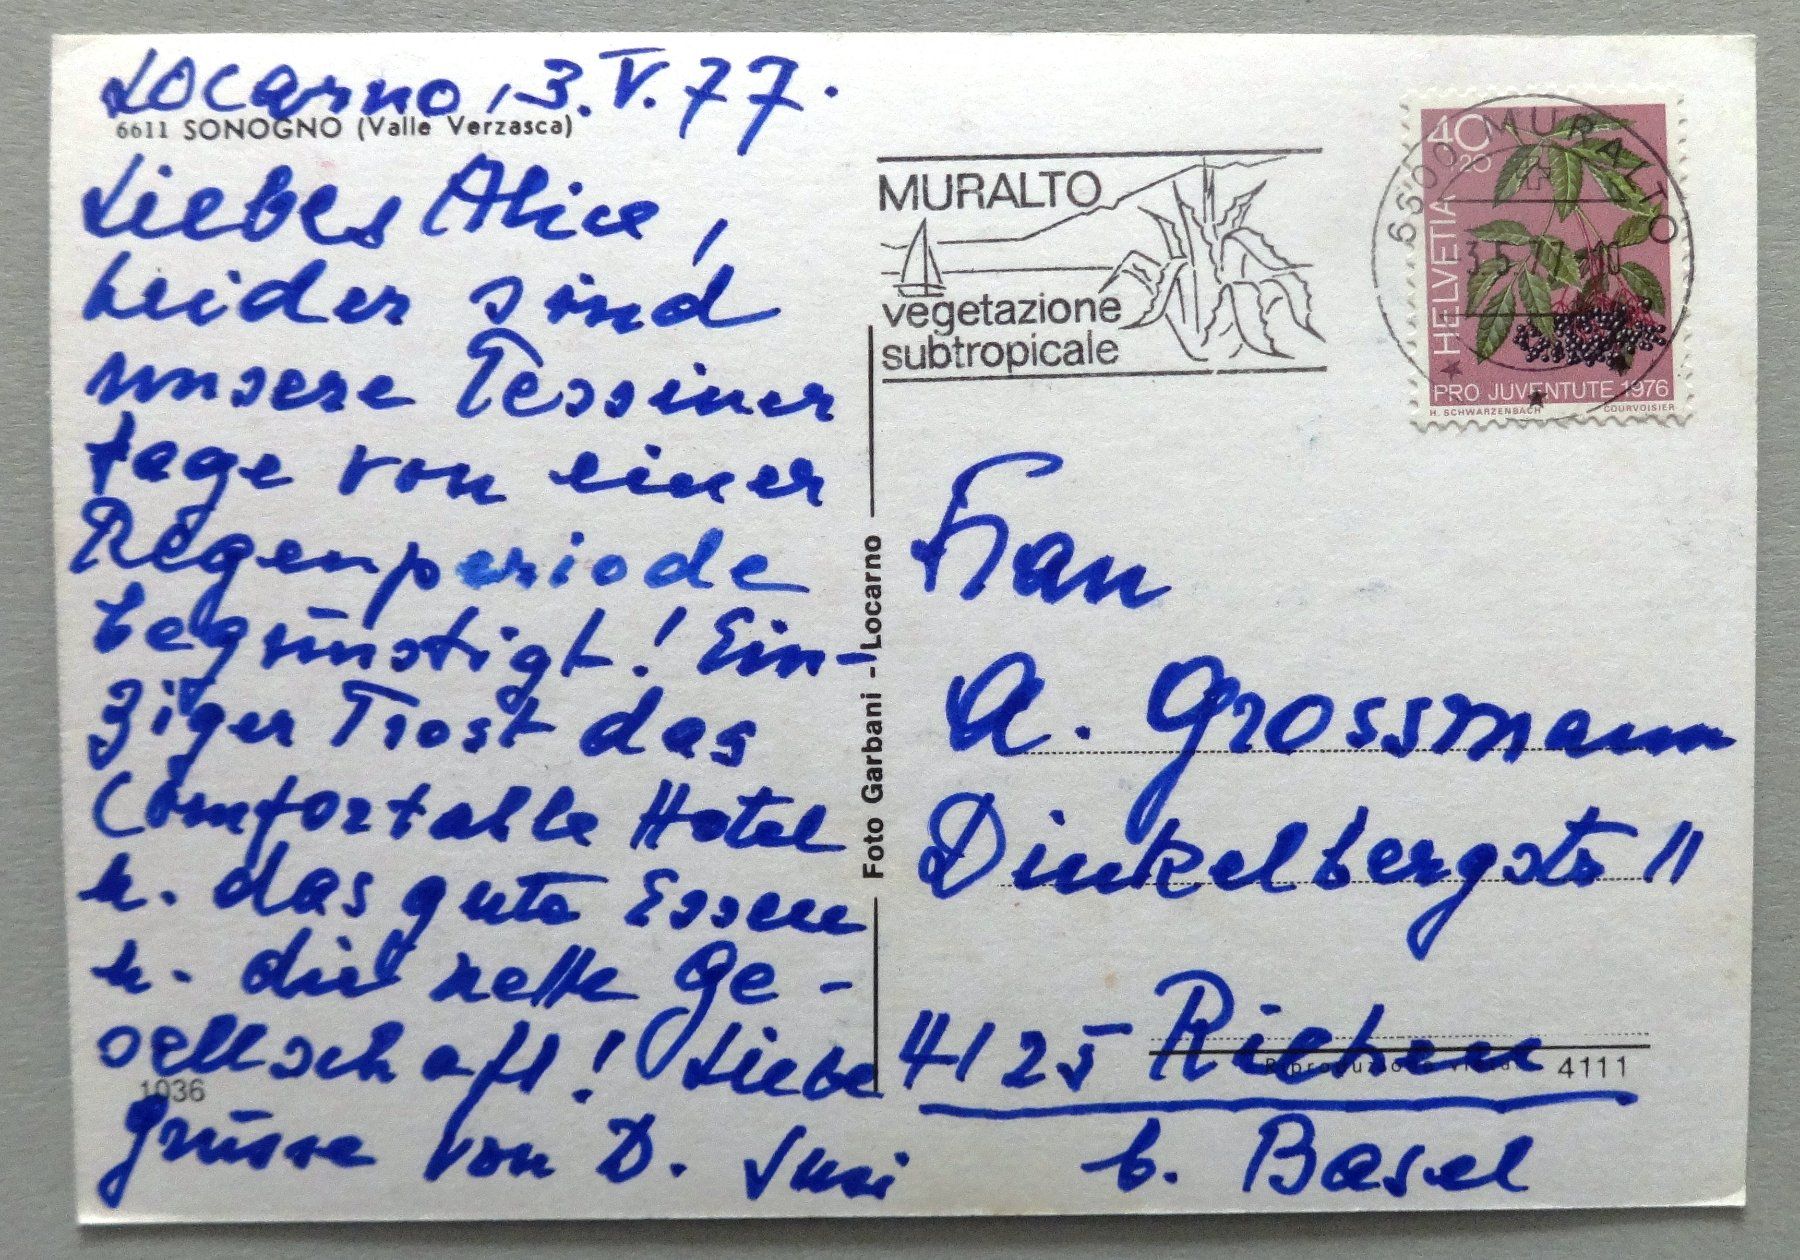 Locarno, 3. V. 77.
6611 SONOGNO (Valle Verzasca)
Liebes Alice,
Leider sind
unsere Tessiner
tage von einer
Regenperiode
begünstigt! Ein-
ziger Trost das
Comfortable Hotel
u. das gute Essen
u. die nette Ge-
sellschaft! Liebe
1036
Grüsse von D. Susi
Foto Garbani - Locarno
MURALTO
vegetazione
subtropicale
6600 MURALTO
-3.5.77-10
40
+20
HELVETIA
PRO JUVENTUTE 1976
H. SCHWARZENBACH COURVOISIER
Frau
A. Grossmann
Dinkelbergstr 11
4125 Riehen
Riproduzione vietata 4111
b. Basel